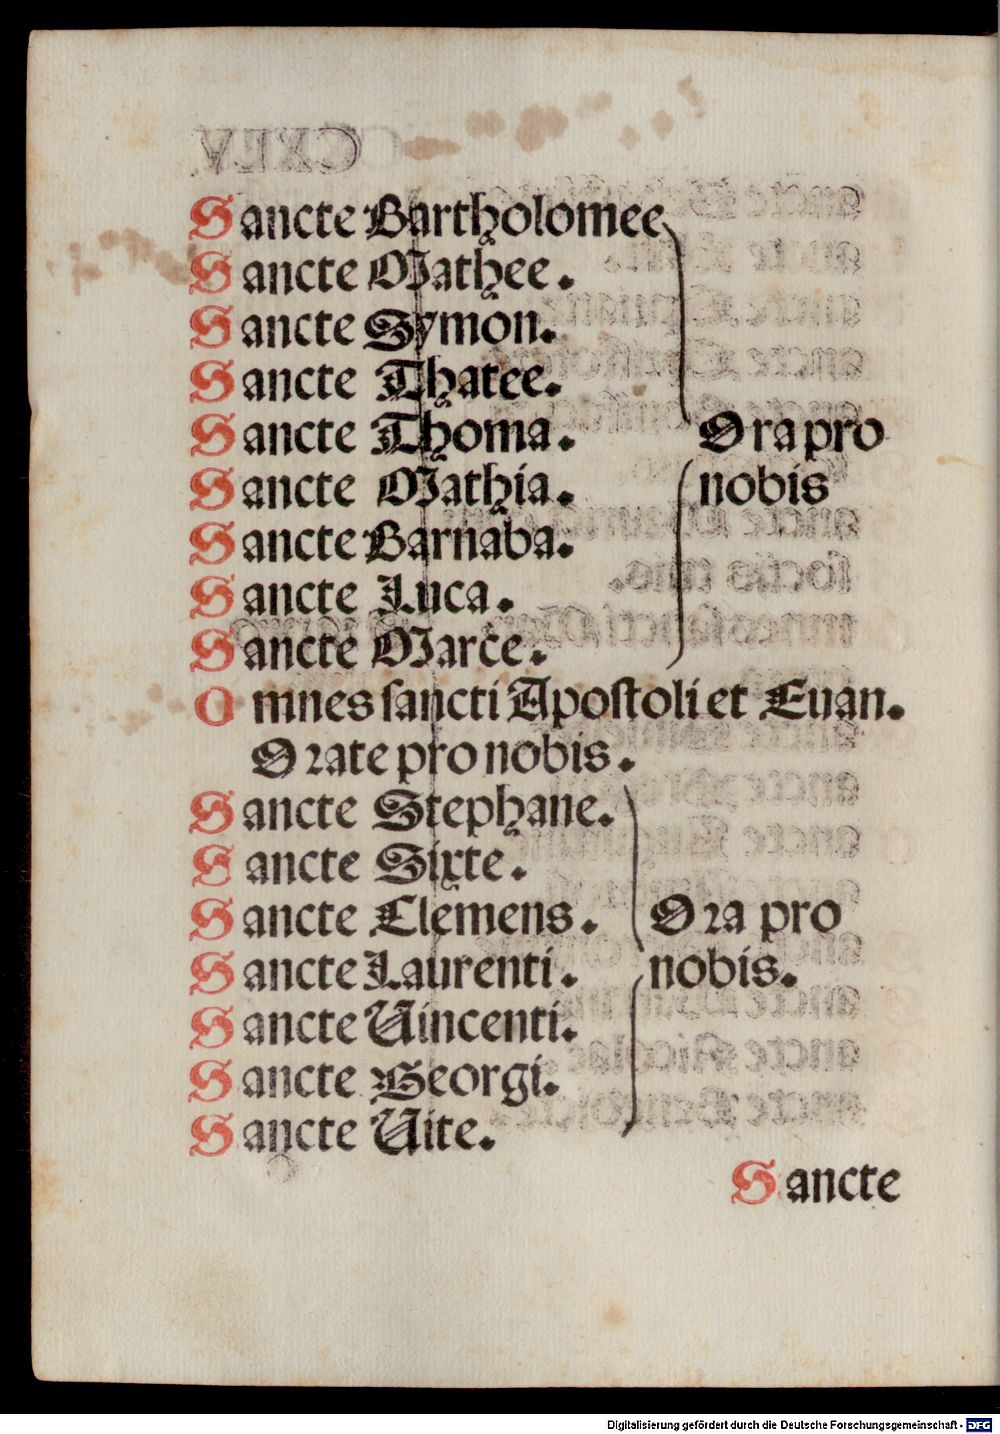 Sancte Bartholomee
Sancte Mathee.
Sancte Symon.
Sancte Thatee.
Sancte Thoma.
Ora pro
Sancte Mathia.
nobis
Sancte Barnaba.
Sancte Luca.
Sancte Marce.
Omnes sancti Apostoli et Euan.
Orate pro nobis.
Sancte Stephane.
Sancte Sixte.
Sancte Clemens.
Ora pro
Sancte Laurenti.
nobis.
Sancte Uincenti.
Sancte Georgi.
Sancte Uite.
Sancte
Digitalisierung gefördert durch die Deutsche Forschungsgemeinschaft - DFG